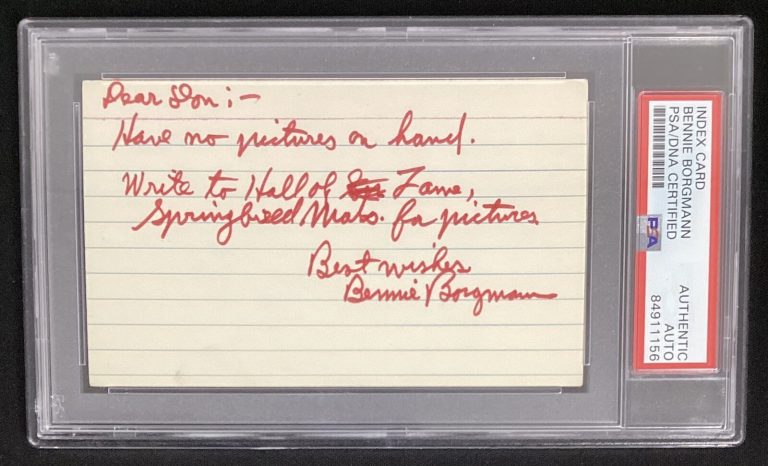 Dear Don :-
Have no pictures on hand.
Write to Hall of Fame,
Springfield Mass. for pictures
Best wishes
Bennie Borgmann
INDEX CARD
BENNIE BORGMANN
PSA/DNA CERTIFIED
PSA
AUTHENTIC
AUTO
84911156